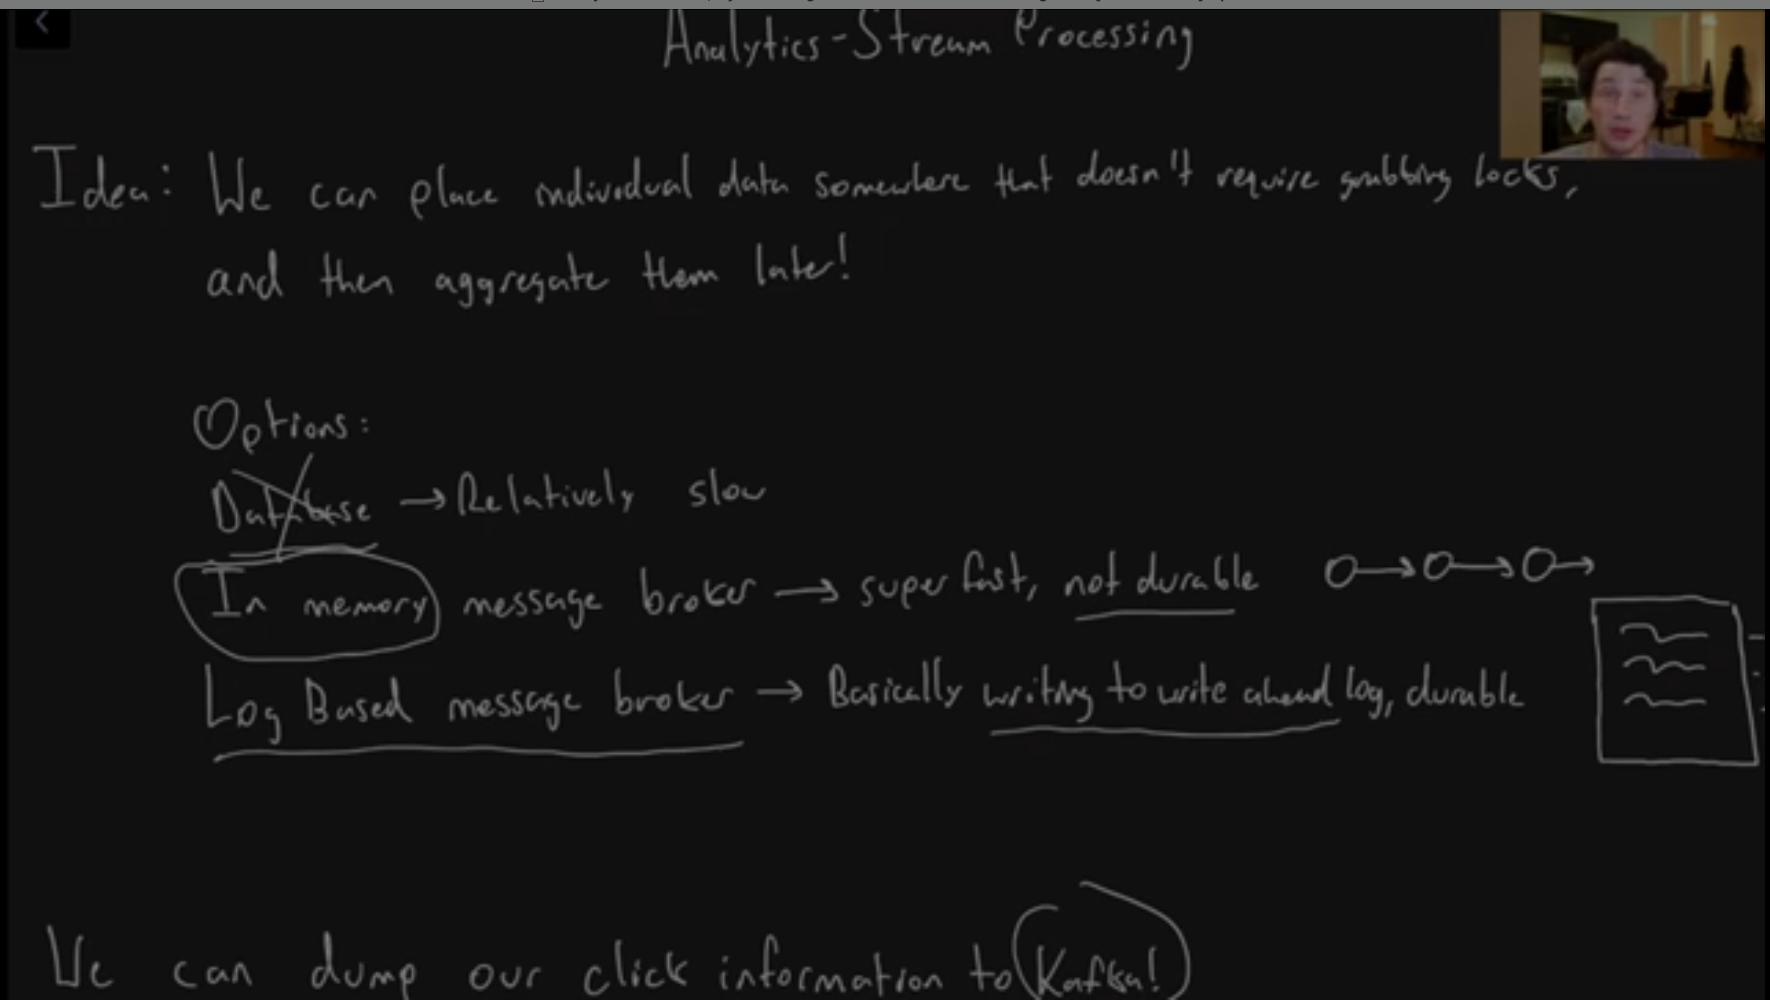 Analytics - Stream Processing
Idea: We can place individual data somewhere that doesn't require grabbing locks,
and then aggregate them later!
Options:
Database → Relatively slow
In memory message broker → super fast, not durable
Log Based message broker → Basically writing to write ahead log, durable
We can dump our click information to Kafka!